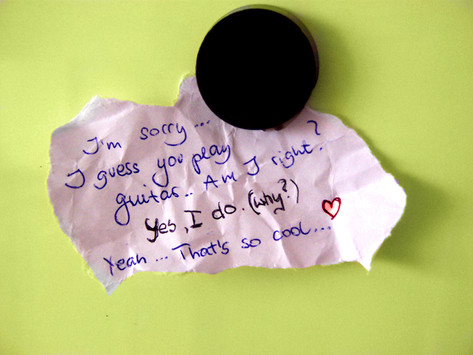 I'm sorry...
I guess you play
guitar.. Am I right?
Yes, I do. (why?)
Yeah ... That's so cool...